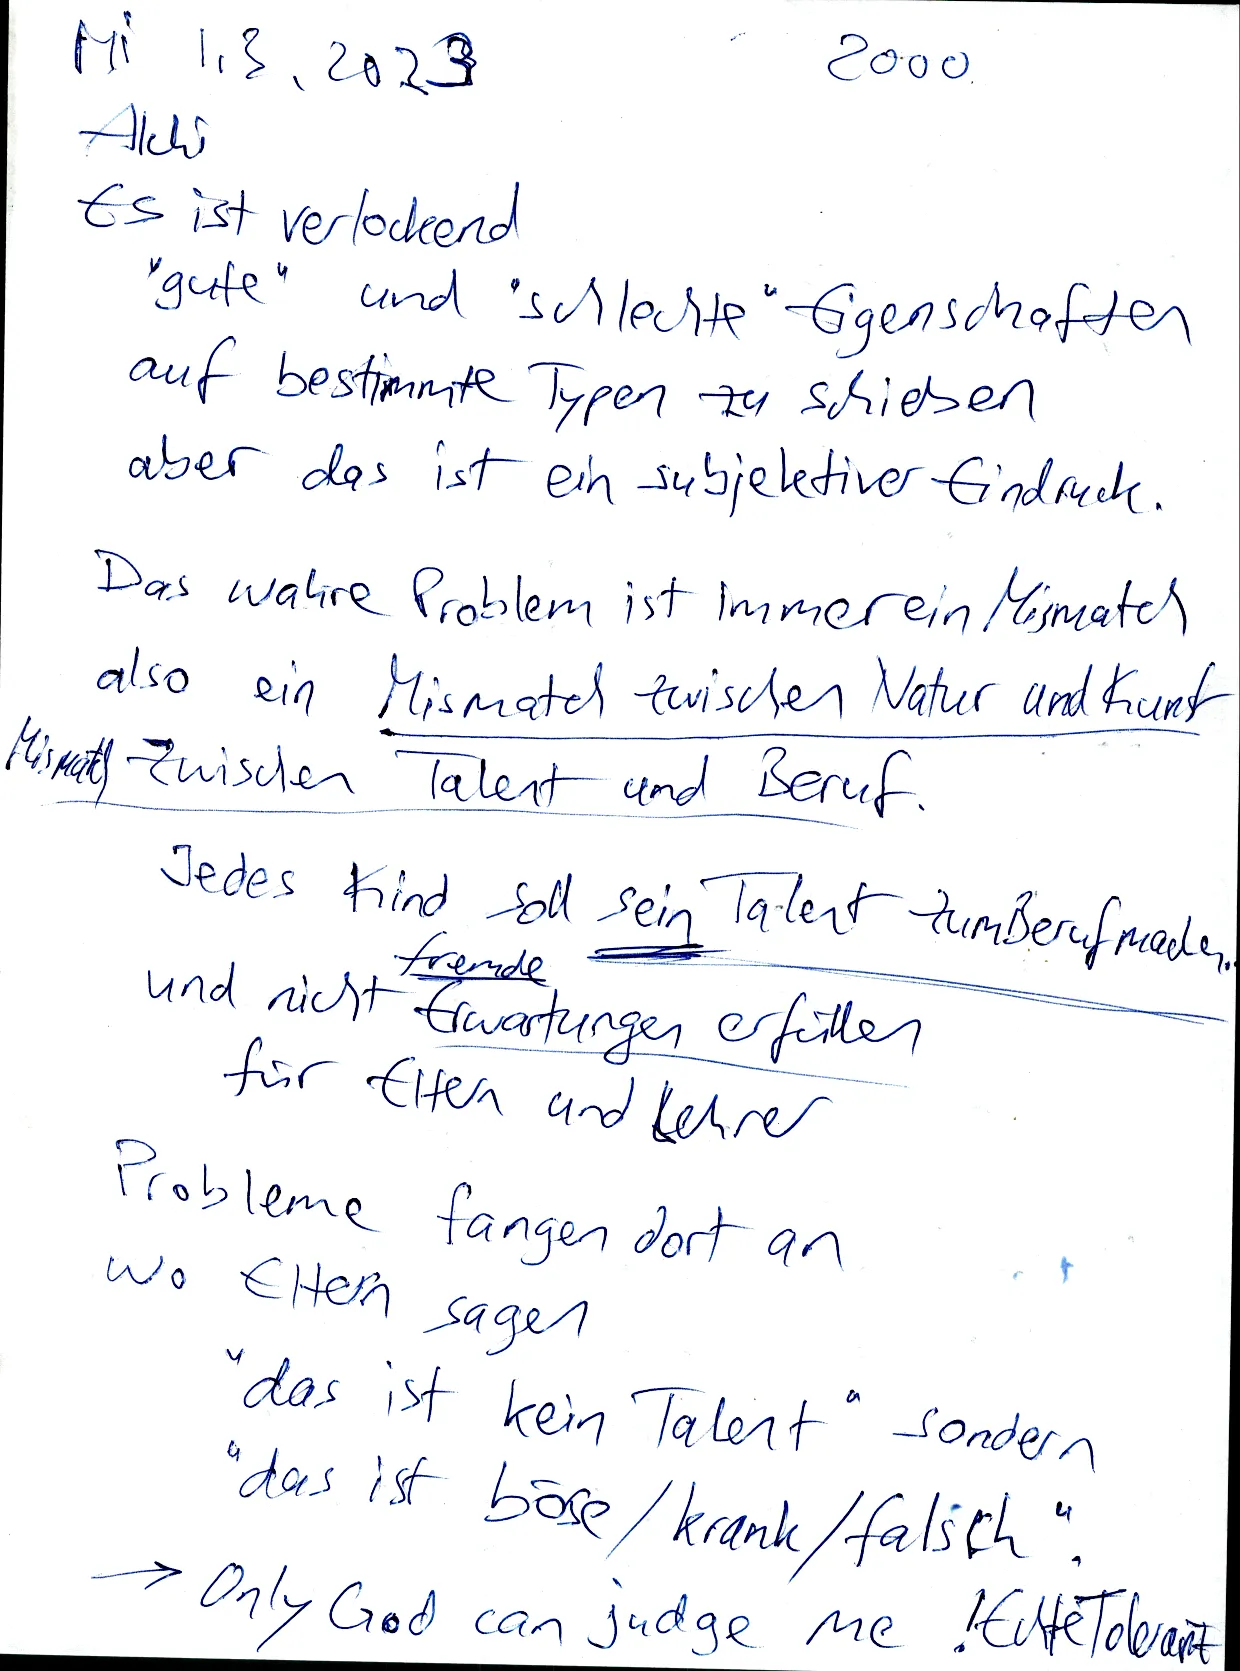 Mi 1.3.2023 2000
Es ist verlockend
"gute" und "schlechte" Eigenschaften
auf bestimmte Typen zu schieben
aber das ist ein subjektiver Eindruck.
Das wahre Problem ist immer ein Mismatch
also ein Mismatch zwischen Natur und Kunst
Mismatch zwischen Talent und Beruf.
Jedes Kind soll sein Talent zum Beruf machen.
fremde
und nicht Erwartungen erfüllen
für Eltern und Lehrer
Probleme fangen dort an
wo Eltern sagen
"das ist kein Talent" sondern
"das ist böse/krank/falsch".
→ Only God can judge me! Echte Toleranz